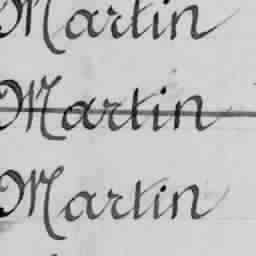 Martin
Martin
Martin